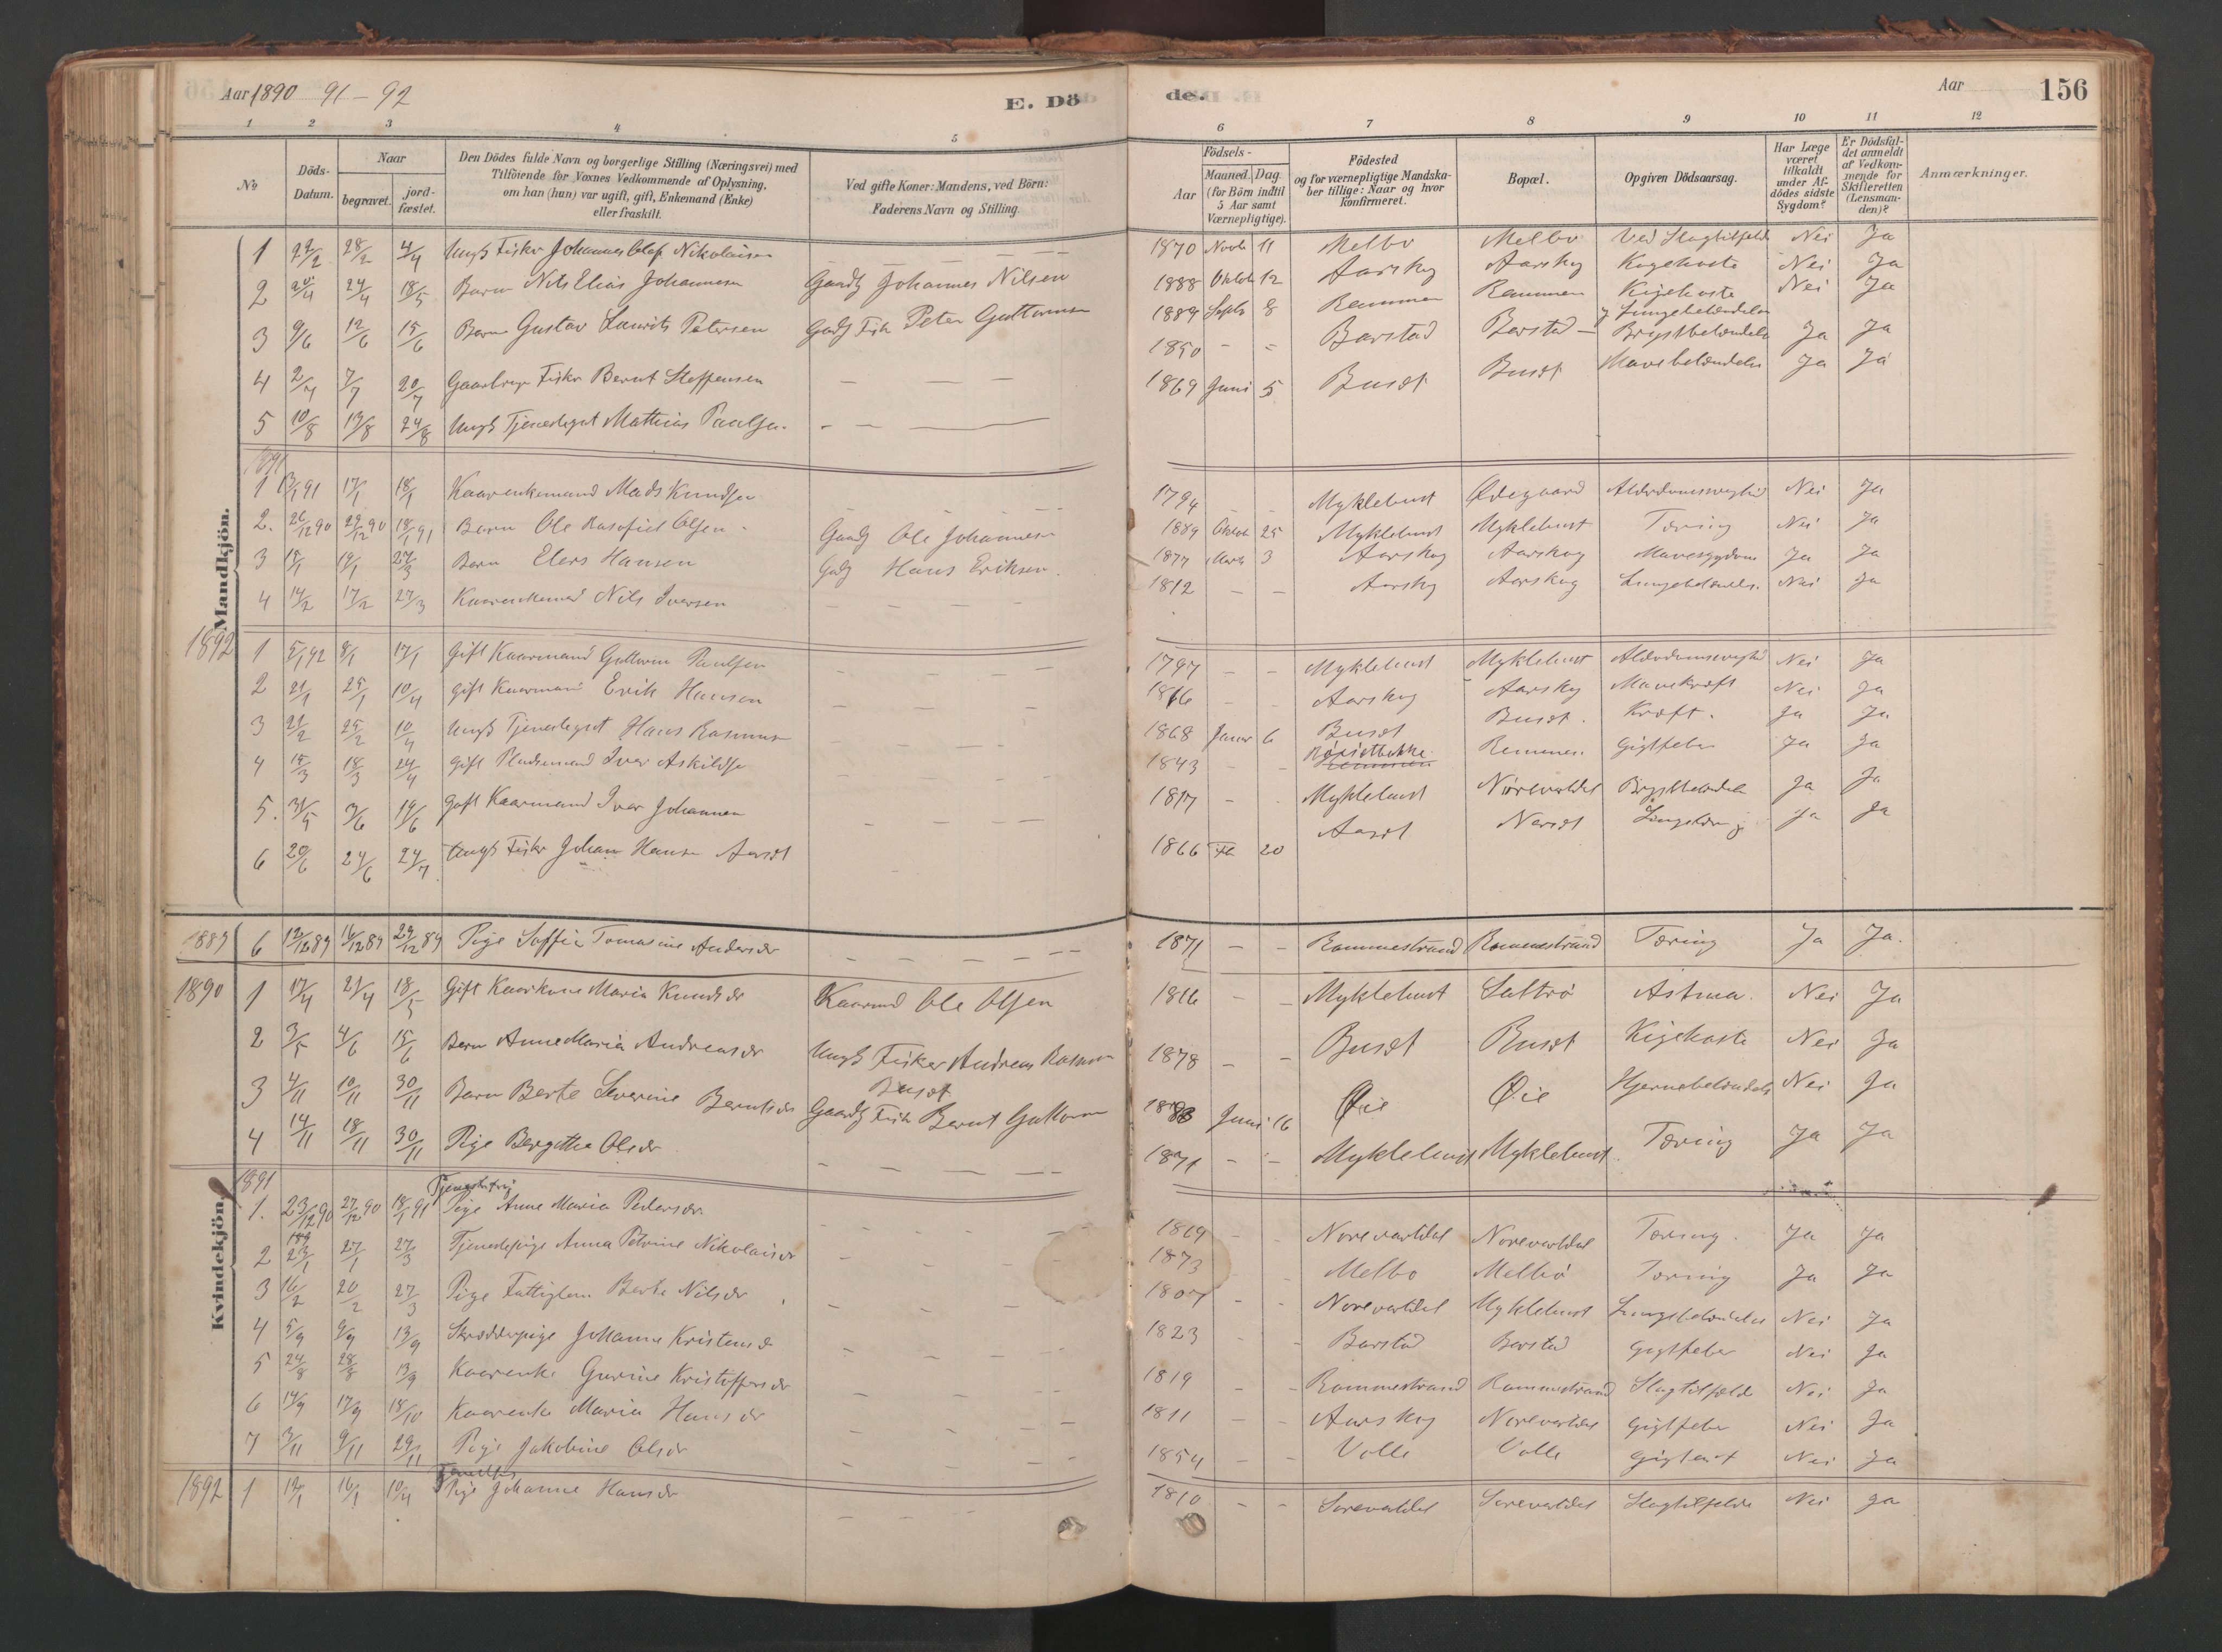 Aar 1890 91 - 92
E. Dö
de.
Aar
156
1 2 3 4 5 6 7 8 9 10 11 12
No
Döds-Datum.
Naar
begravet.
jord-fæstet.
Den Dödes fulde Navn og borgerlige Stilling (Næringsvei) med
Tilföiende for Voxnes Vedkommende af Oplysning,
om han (hun) var ugift, gift, Enkemand (Enke)
eller fraskilt.
Ved gifte Koner: Mandens, ved Börn:
Faderens Navn og Stilling.
Födsels-
Aar
Maaned. Dag.
(for Börn indtil
5 Aar samt
Værnepligtige).
Födested
og for værnepligtige Mandska-
ber tillige: Naar og hvor
konfirmeret.
Bopæl.
Opgiven Dödsaarsag.
Har Læge
været
tilkaldt
under Af-
dödes sidste
Sygdom?
Er Dödsfal-
det anmeldt
af Vedkom-
mende for
Skifteretten
(Lensman-
den)?
Anmærkninger.
Mandkjön.
1 22/2 28/2 4/4 Ungk Fisker Johannes Olaf Nikolaisen — 1870 Novbr 11 Melbø Melbø Ved Slagtilfælde Nei Ja
2 20/4 24/4 18/5 Barn Nils Elias Johannesen Gaardb Johannes Nilsen 1888 Oktob 12 Aarskog Aarskog Kigehoste Nei Ja
3 9/6 12/6 15/6 Barn Gustav Laurits Petersen Gaardb Fisk Peter Guttormsen 1889 Septb 8 Remmen Remmen Kigehoste Nei Ja
4 2/7 7/7 20/7 Gaardbruger Fisker Bernt Steffensen — 1850 - - Barstad Barstad Brystbetændelse Ja Ja
5 10/8 13/8 24/8 Ungk Tjenestegut Mathias Paulsen — 1869 Juni 5 Buset Buset Mavebetændelse Ja Ja
1891
1 13/1 91 17/1 18/1 Kaarenkemand Mads Knudsen — 1794 - - Myklebust Ødegaard Alderdomssvaghed Nei Ja
2. 26/12 90 29/12 90 18/1 91 Barn Ole Olsen Gaardb Ole Johannesen 1889 Oktob 25 Myklebust Myklebust Tæring Nei Ja
3 15/1 19/1 27/3 Barn Elers Hansen Gdb Hans Eriksen 1877 Marts 3 Aarskog Aarskog Mavesygdom Ja Ja
4 14/2 17/2 27/3 Kaarenkemand Nils Iversen — 1812 - - Aarskog Aarskog Lungebetændelse Nei Ja
1892
1 5/1 92 8/1 17/1 Gift Kaarmand Guttorm Paulsen — 1797 - - Myklebust Myklebust Alderdomssvaghed Nei Ja
2 21/1 25/1 10/4 Gift Kaarmand Erik Hansen — 1816 - - Aarskog Aarskog Mavekræft Nei Ja
3 21/2 25/2 10/4 Ungk Tjenestegut Hans Rasmussen — 1868 Januar 6 Buset Buset Kræft Ja Ja
4 15/3 18/3 24/4 Gift Pladsemand Iver Askildsen — 1843 - - Remmen Gigtfeber Ja Ja
5. 31/5 3/6 19/6 Gift Kaarmand Iver Johannesen — 1817 - - Myklebust Norevartdal Brystbetændelse Ja Ja
6 20/6 24/6 24/7 Ungk Fisker Johan Hansen Aarset — 1866 Feb 20 Aarset Ja Ja
Kvindekjön.
1889 6 12/12 89 16/12 89 29/12 89 Pige Soffia Tomasine Andersdr — 1871 - - Rammestrand Rammestrand Tæring Ja Ja.
1890 1 17/4 21/4 18/5 Gift Kaarkone Maria Knudsdr Kaarmd Ole Olsen 1816 - - Myklebust Saltrø Astma. Nei Ja
2 3/5 4/6 15/6 Barn Anne Maria Andreasdr Ungk Fisker Andreas Rasmussen Buset 1878 - - Buset Buset Kigehoste Nei Ja
3 4/11 10/11 30/11 Barn Berte Severine Berntsdr Gaardb Fisk Bernt Guttormsen Juni 16 Øie Øie Hjernebetændelse Nei Ja
4 14/11 18/11 30/11 Pige Bergitha Olsdr — 1871 - - Myklebust Myklebust Tæring Ja Ja
1891
1. 23/12 90 27/12 90 18/1 91 Pige Anne Maria Pedersdr — 1869 - - Norevartdal Norevartdal Tæring Ja Ja
2 23/1 27/1 27/3 Tjenestepige Anna Petrine Nikolaisdr — 1873 - Melbø Melbø Tæring Ja Ja
3 16/2 20/2 27/3 Pige Fattiglem Berte Nilsdr — 1807 - - Norevartdal Myklebust Lungebetændelse Nei Ja
4 5/9 9/9 13/9 Skrædderpige Johanne Kristensdr — 1823 - - Barstad Barstad Gigtfeber Nei Ja
5 24/8 28/8 13/9 Kaarenke Gurine Kristoffersdr — 1819 - - Rammestrand Rammestrand Slagtilfælde Nei Ja
6 14/9 17/9 18/10 Kaarenke Maria Hansdr — 1811 - - Aarskog Norevartdal Gigtfeber Nei Ja
7 3/11 9/11 29/11 Pige Jakobine Olsdr — 1854 - - Volle Volle Nei Ja
1892 1 12/1 16/1 10/4 Pige Johanne Hansdr — 1810 - - Sørevartdal Sørevartdal Slagtilfælde Nei Ja